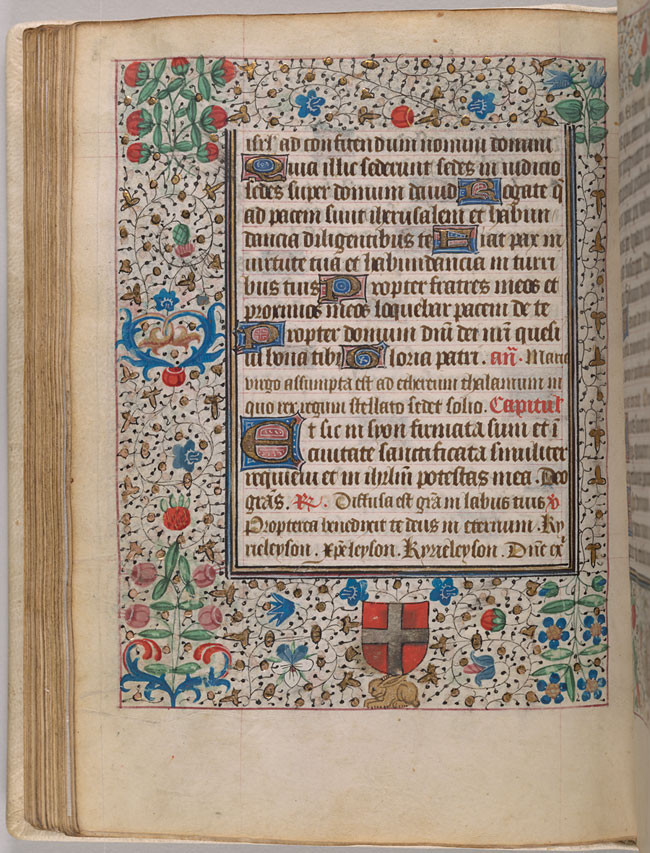 isrl' ad confitendum nomini domini
Quia illic sederunt sedes in iudicio
sedes super domum dauid Rogate q
ad pacem sunt iherusalem et habun
dancia diligentibus te Fiat pax in
uirtute tua et habundancia in turri
bus tuis Propter fratres meos et
proximos meos loquebar pacem de te
Propter domum dni dei nri quesi
ui bona tibi Gloria patri. an. Maria
virgo assumpta est ad ethereum thalamum in
quo rex regum stellato sedet solio. Capitul'
Et sic in syon firmata sum et i
ciuitate sanctificata similiter
requieui et in ihrlm potestas mea. Deo
gras. R. Diffusa est gra in labiis tuis V
Propterea benedixit te deus in eternum. Ky
rieleyson. xpeleyson. Kyrieleyson. Dne ex